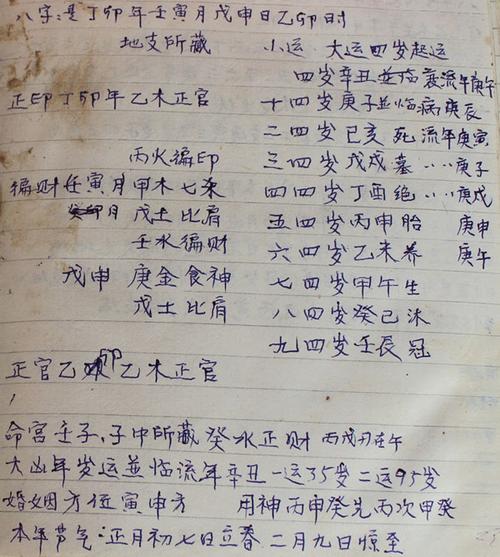 八字:是丁卯年壬寅月戊申日乙卯时
地支所藏 小运 大运四岁起运
四岁辛丑並临衰流年庚午
正印丁卯年乙木正官 十四岁庚子並临病庚辰
二四岁己亥 死 流年庚寅
丙火偏印 三四岁戊戌墓‥‥庚子
偏财壬寅月甲木七杀 四四岁丁酉绝‥‥庚戌
月 戊土 比肩 五四岁丙申胎 庚申
壬水偏财 六四岁乙未养 庚午
戊申 庚金食神 七四岁甲午生
戊土比肩 八四岁癸巳沐
九四岁壬辰 冠
正官乙卯乙木正官
命宫壬子,子中所藏癸水正财 丙戌 在午
大凶年岁运並临流年辛丑一运35岁二运95岁
婚姻方位寅申方 用神丙甲癸先丙次甲癸
本年节气:正月初七日立春 二月九日惊至